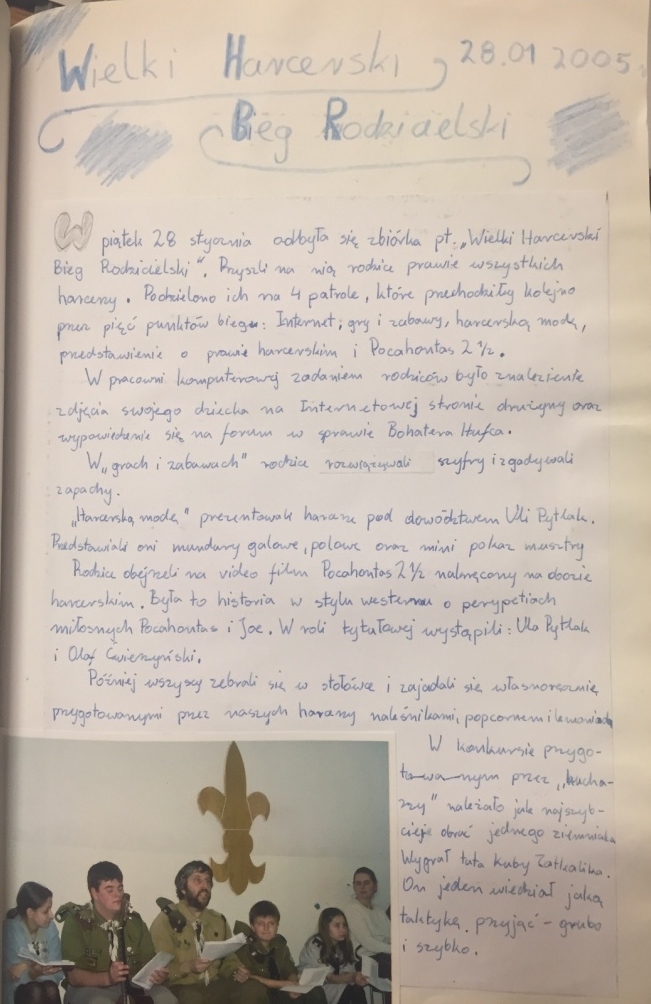 Wielki Harcerski 28.01 2005r
Bieg Rodzicielski
W piątek 28 stycznia odbyła się zbiórka pt. „Wielki Harcerski
Bieg Rodzicielski". Przyszli na nią rodzice prawie wszystkich
harcerzy. Podzielono ich na 4 patrole, które przechodziły kolejno
przez pięć punktów biegu: Internet, gry i zabawy, harcerską modę,
przedstawienie o prawie harcerskim i Pocahontas 2 ½.
W pracowni komputerowej zadaniem rodziców było znalezienie
zdjęcia swojego dziecka na Internetowej stronie drużyny oraz
wypowiedzenie się na forum w sprawie Bohatera Hufca.
W „grach i zabawach" rodzice rozwiązywali szyfry i zgadywali
zapachy.
„Harcerską modę" prezentowali harcerze pod dowództwem Uli Pytlak.
Przedstawiali oni mundury galowe, polowe oraz mini pokaz musztry
Rodzice obejrzeli na video film Pocahontas 2 ½ nakręcony na obozie
harcerskim. Była to historia w stylu westernu o perypetiach
miłosnych Pocahontas i Joe. W roli tytułowej wystąpili: Ula Pytlak
i Olaf Ćwierzyński.
Później wszyscy zebrali się w stołówce i zajadali się własnoręcznie
przygotowanymi przez naszych harcerzy naleśnikami, popcornem i lemoniadą
W konkursie przygo-
towanym przez „kucha-
rzy" należało jak najszyb-
ciej obrać jednego ziemniaka
Wygrał tata Kuby Zatkalika.
On jeden wiedział jaką
taktykę przyjąć - grubo
i szybko.